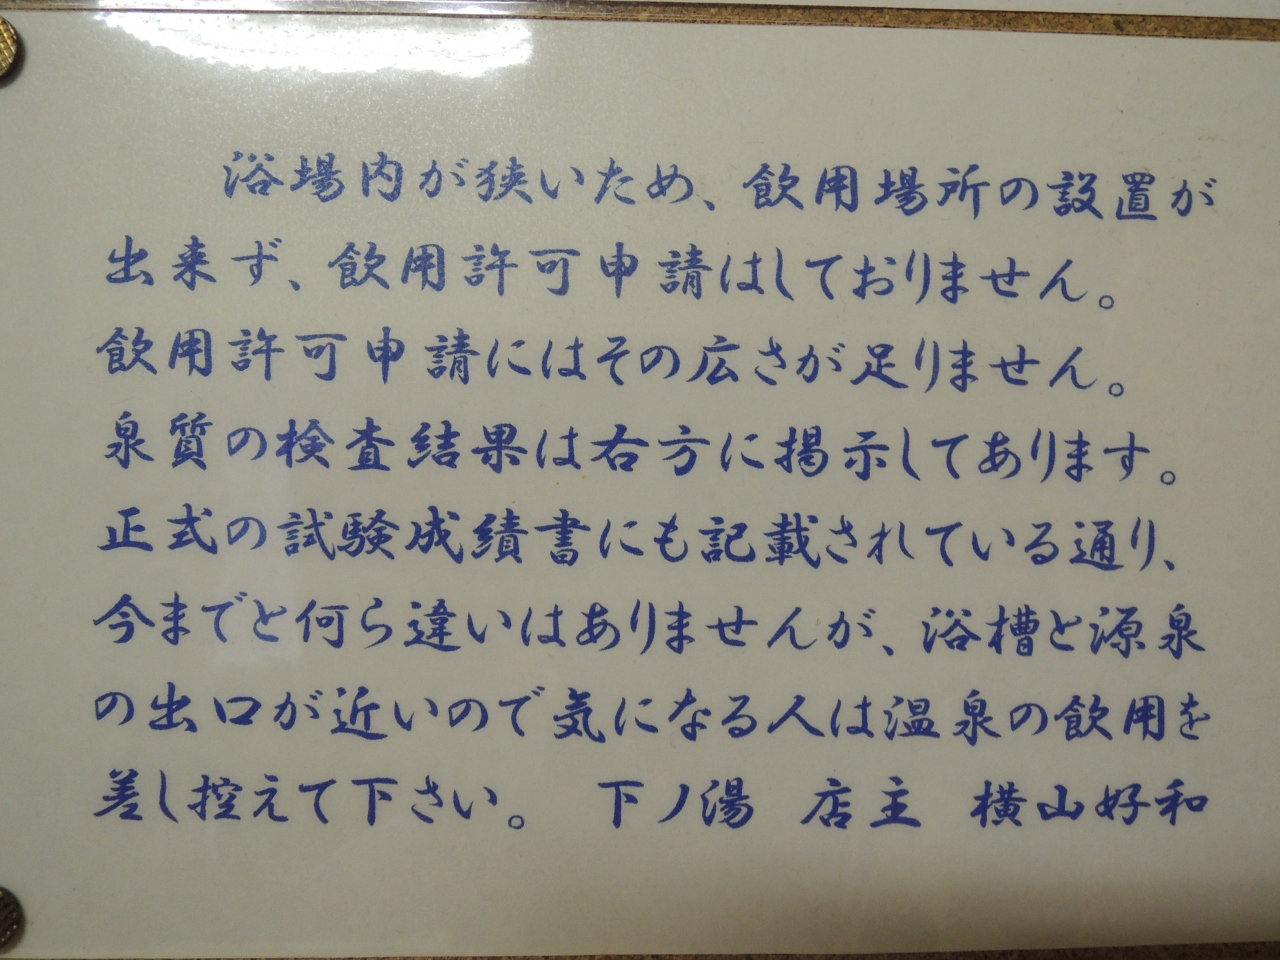 浴場内が狭いため、飲用場所の設置が
出来ず、飲用許可申請はしておりません。
飲用許可申請にはその広さが足りません。
泉質の検査結果は右方に掲示してあります。
正式の試験成績書にも記載されている通り、
今までと何ら違いはありませんが、浴槽と源泉
の出口が近いので気になる人は温泉の飲用を
差し控えて下さい。 下ノ湯 店主 横山好和